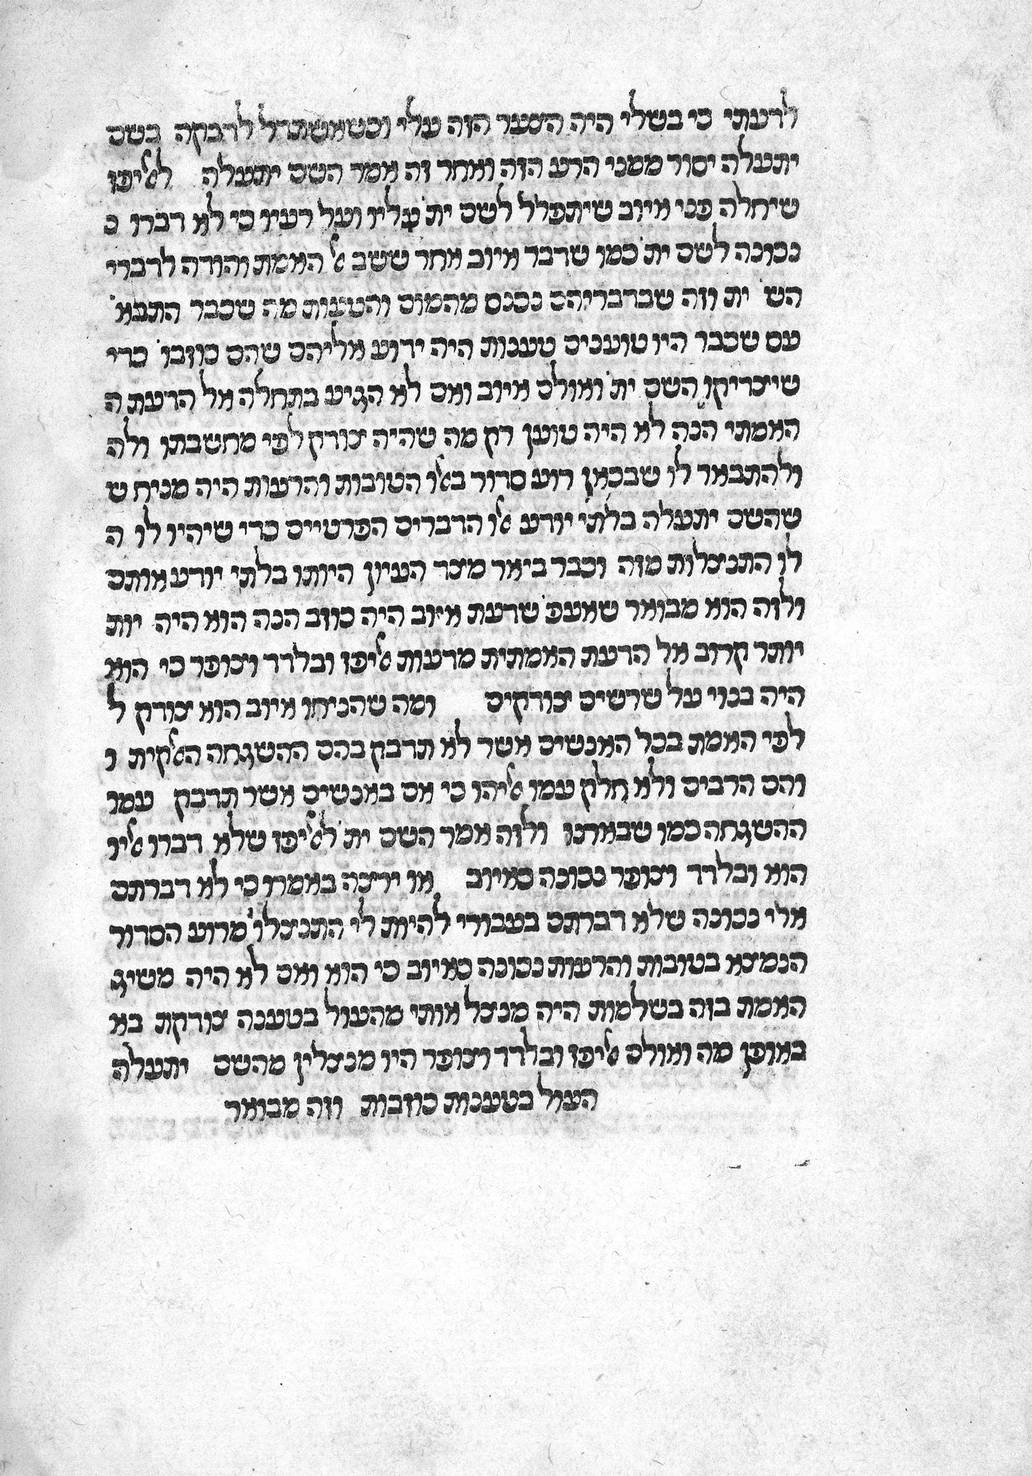 לדעתי כי בשלי היה הסער הזה עלי וכשאשתדל לדבקה בשם
יתעלה יסור ממני הרע הזה ואחר זה אמר השם יתעלה לאליפז
שיחלה פני איוב שיתפלל לשם ית' עליו ועל רעיו כי לא דברו כ
נכונה לשם ית' כמו שדבר איוב אחר ששב אל האמת והודה לדברי
הש' ית' וזה שבדבריהם נכנס מהמום והטעות מה שכבר התבא'
עם שכבר היו טוענים טענות היה ידוע אליהם שהם כוזבו' כדי
שיצדיקו השם ית' ואולם איוב ואם לא הגיע בתחלה אל הדעת ה
האמתי הנה לא היה טוען רק מה שהיה יצודק לפי מחשבתו ולה
ולהתבאר לו שבכאן רוע סדור באלו הטובות והרעות היה מניח ש
שהשם יתעלה בלתי יודע אלו הדברים הפרטיים כדי שיהיו לו ה
לו התנצלות מזה וכבר ביאר מצד העיון היותו בלתי יודע אותם
ולזה הוא מבואר שאעפ' שדעת איוב היה כוזב הנה הוא היה יות
יותר קרוב אל הדעת האמתית מדעות אליפז ובלדד וצופר כי הוא
היה בנוי על שרשים צודקים ומה שהניחו איוב הוא צודק ל
לפי האמת בכל האנשים אשר לא תדבק בהם ההשגחה האלקית ו
והם הרבים ולא חלק עמו אליהו כי אם באנשים אשר תדבק עמו
ההשגחה כמו שבארנו ולזה אמר השם ית' לאליפז שלא דברו אליו
הוא ובלדד וצופר נכונה כאיוב או ירצה באמרו כי לא דברתם
אלי נכונה שלא דברתם בעבורי להיות לי התנצלו' מרוע הסדור
הנמצא בטובות והרעות נכונה כאיוב כי הוא ואם לא היה משיג
האמת בזה בשלמות היה מנצל אותי מהעול בטענה צודקת בא
באופן מה ואולם אליפז ובלדד וצופר היו מנצלין מהשם יתעלה
העול בטענות כוזבות וזה מבואר